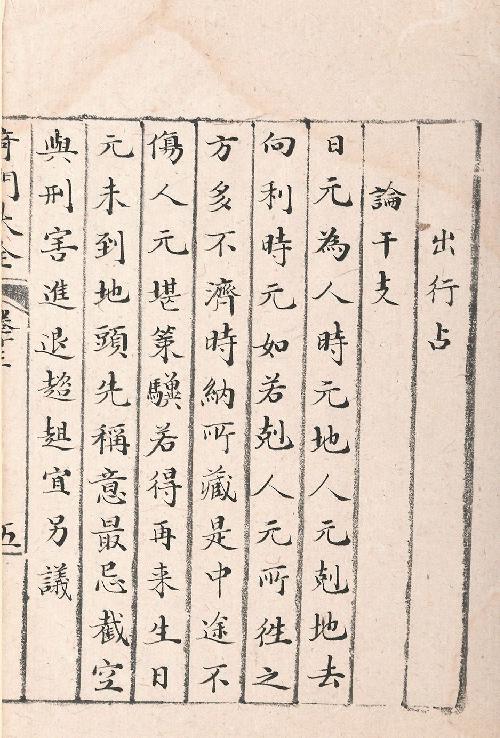 出行占
論干支
日元為人時元地人元剋地去
向利時元如若剋人元所徃之
方多不濟時納所藏是中途不
傷人元堪策驥若得再来生日
元未到地頭先稱意最忌截空
與刑害進退趑趄宜另議
五